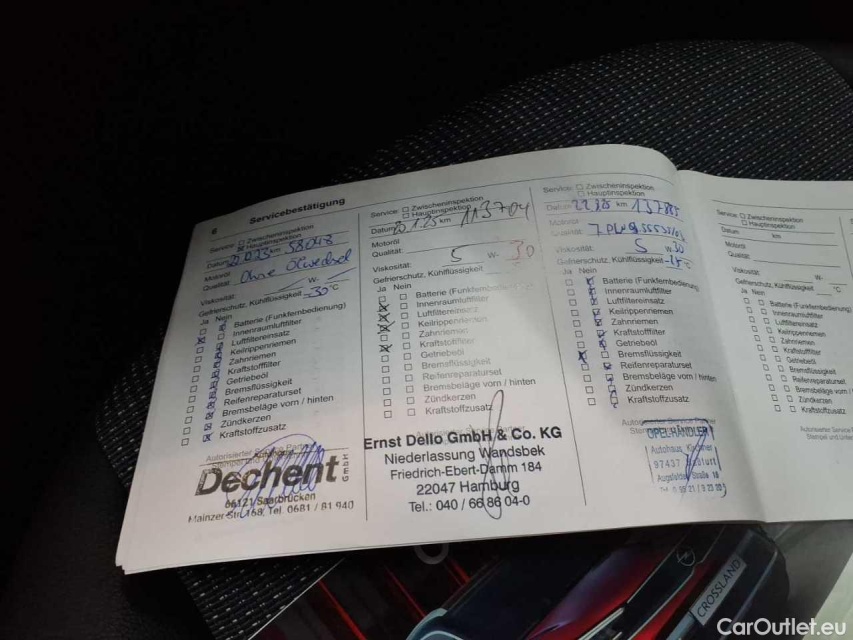 6 Servicebestätigung
Service: Zwischeninspektion
Hauptinspektion
Datum km 58048
Motoröl
Qualität: Ohne Ölwechsel
Viskosität: W-
Gefrierschutz, Kühlflüssigkeit -30°C
Ja Nein
Batterie (Funkfernbedienung)
Innenraumluftfilter
Luftfiltereinsatz
Keilrippenriemen
Zahnriemen
Kraftstofffilter
Getriebeöl
Bremsflüssigkeit
Reifenreparaturset
Bremsbeläge vorn / hinten
Zündkerzen
Kraftstoffzusatz
Autorisierter Service Partner
Dechent GmbH
66121 Saarbrücken
Mainzer Str. 168, Tel. 0681 / 81 940
Service: Zwischeninspektion
Hauptinspektion
Datum km 113704
Motoröl
Qualität:
Viskosität: 5 W- 30
Gefrierschutz, Kühlflüssigkeit °C
Ja Nein
Batterie (Funkfernbedienung)
Innenraumluftfilter
Luftfiltereinsatz
Keilrippenriemen
Zahnriemen
Kraftstofffilter
Getriebeöl
Bremsflüssigkeit
Reifenreparaturset
Bremsbeläge vorn / hinten
Zündkerzen
Kraftstoffzusatz
Ernst Dello GmbH & Co. KG
Niederlassung Wandsbek
Friedrich-Ebert-Damm 184
22047 Hamburg
Tel.: 040 / 66 86 04-0
Service: Zwischeninspektion
Hauptinspektion
Datum km
Motoröl
Qualität:
Viskosität: 5 W- 30
Gefrierschutz, Kühlflüssigkeit °C
Ja Nein
Batterie (Funkfernbedienung)
Innenraumluftfilter
Luftfiltereinsatz
Keilrippenriemen
Zahnriemen
Kraftstofffilter
Getriebeöl
Bremsflüssigkeit
Reifenreparaturset
Bremsbeläge vorn / hinten
Zündkerzen
Kraftstoffzusatz
OPEL-HÄNDLER
Autohaus
97437
Augsfelder Straße 18
Service: Zwischeninspektion
Hauptinspektion
Datum km
Motoröl
Qualität:
Viskosität: W-
Gefrierschutz, Kühlflüssigkeit °C
Ja Nein
Batterie (Funkfernbedienung)
Innenraumluftfilter
Luftfiltereinsatz
Keilrippenriemen
Zahnriemen
Kraftstofffilter
Getriebeöl
Bremsflüssigkeit
Reifenreparaturset
Bremsbeläge vorn /
Zündkerzen
Kraftstoffzusatz
Autorisierter Service
Stempel und
CROSSLAND
CarOutlet.eu